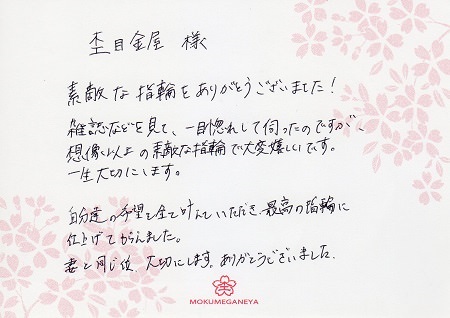 杢目金屋 様
素敵な指輪をありがとうございました！
雑誌などを見て、一目惚れして伺ったのですが、
想像以上の素敵な指輪で大変嬉しいです。
一生大切にします。
自分達の希望を全て叶えていただき、最高の指輪に
仕上げてもらえました。
妻と同じ位、大切にします。ありがとうございました。
MOKUMEGANEYA